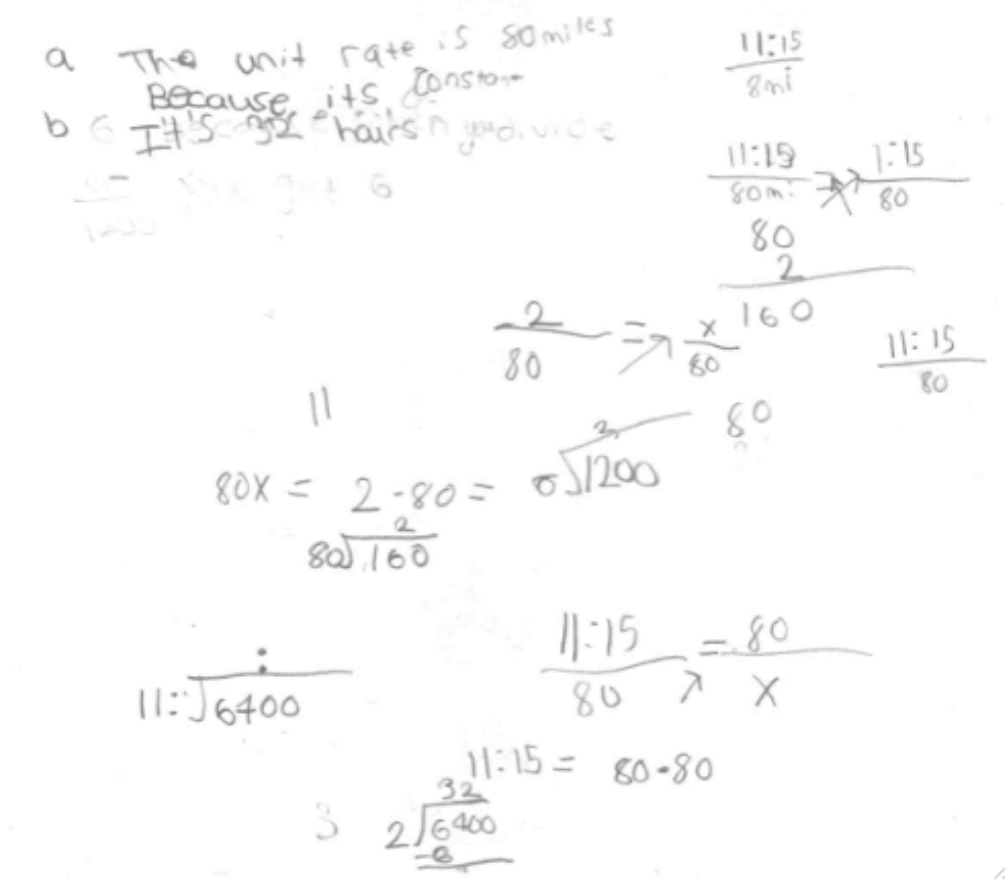 a The unit rate is 80miles
Because its constant
b It's 32 hours
6
1200
11:15
8mi
11:15
80mi
1:15
80
80
2
160
2
80
=
x
80
11:15
80
11
80
80x = 2-80 =
2
1200
2
80 160
11: 6400
11:15 = 80
80 x
11:15 = 80-80
32
3 2 6400
-6